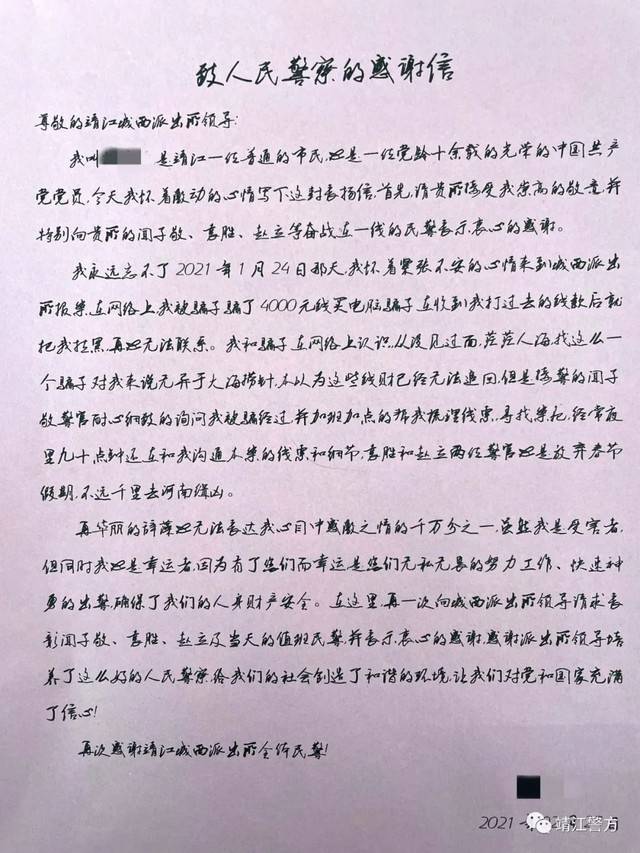 致人民警察的感谢信
尊敬的靖江城西派出所领导:
我叫 是靖江一位普通的市民,也是一位党龄十余载的光荣的中国共产
党党员,今天我怀着激动的心情写下这封表扬信,首先,请贵所接受我崇高的敬意,并
特别向贵所的闻子敬、袁胜、赵立等奋战在一线的民警表示衷心的感谢。
我永远忘不了2021年1月24日那天,我怀着紧张不安的心情来到城西派出
所报案,在网络上我被骗子骗了4000元钱买电脑,骗子在收到我打过去的钱款后就
把我拉黑,再也无法联系。我和骗子在网络上认识,从没见过面,茫茫人海,找这么一
个骗子对我来说无异于大海捞针,本以为这些钱财已经无法追回,但是接警的闻子
敬警官耐心细致的询问我被骗经过,并加班加点的帮我梳理线索,寻找案犯,经常夜
里九十点钟还在和我沟通本案的线索和细节,袁胜和赵立两位警官也是放弃春节
假期,不远千里去河南缉凶。
再华丽的辞藻也无法表达我心目中感激之情的千万分之一,虽然我是受害者,
但同时我也是幸运者,因为有了您们而幸运,是您们无私无畏的努力工作、快速神
勇的出警,确保了我们的人身财产安全。在这里,再一次向城西派出所领导请求表
彰闻子敬、袁胜、赵立及当天的值班民警,并表示衷心的感谢,感谢派出所领导培
养了这么好的人民警察,给我们的社会创造了和谐的环境,让我们对党和国家充满
了信心!
再次感谢靖江城西派出所全体民警!
2021
靖江警方